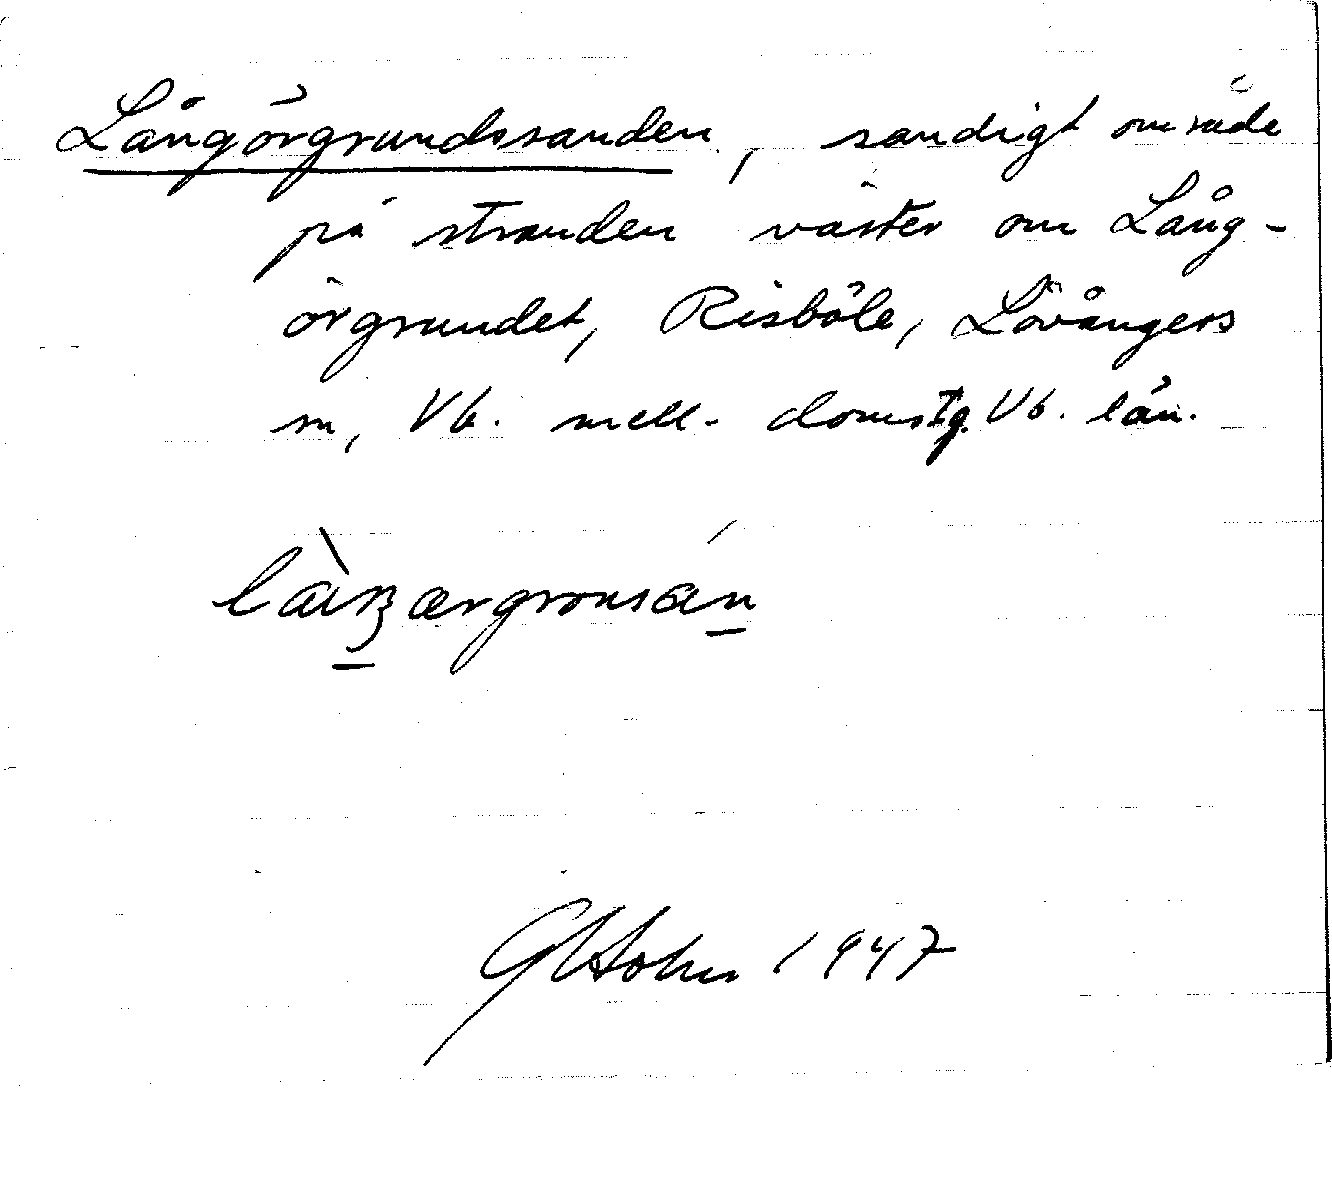 Långörgrundssanden, sandigt område
på stranden väster om Lång-
örgrundet, Risböle, Lövångers
sn, Vb. mell. domstg. Vb. län.
1947